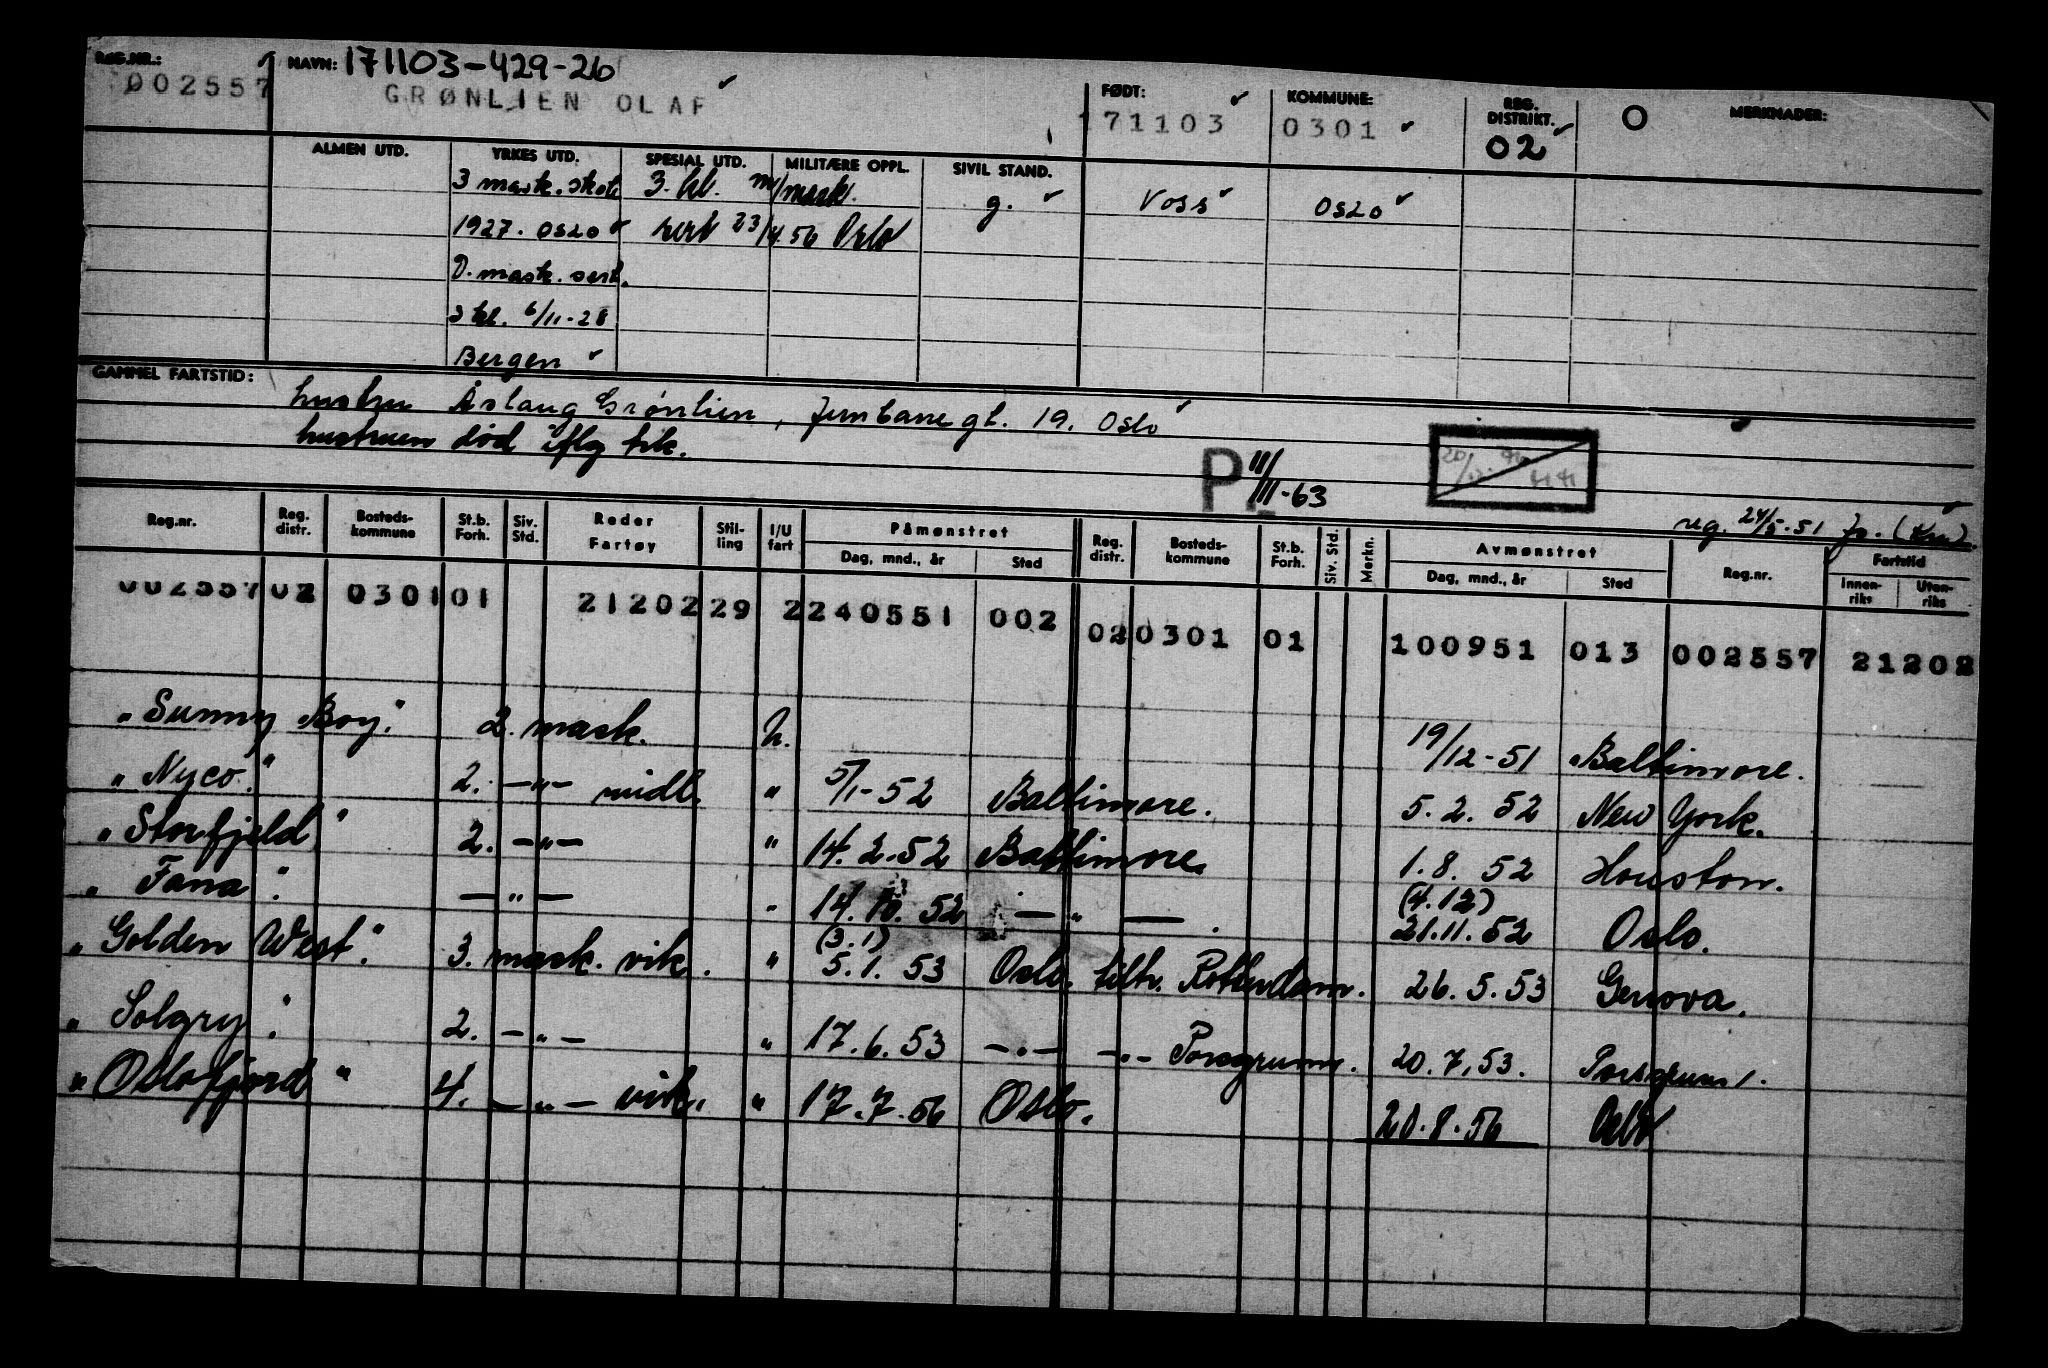 REG.NR.: NAVN: 171103-429-26
002557 GRØNLIEN OLAF
FØDT: 171103
KOMMUNE: 0301
REG. DISTRIKT. 02
O
MERKNADER:
ALMEN UTD. YRKES UTD. SPESIAL UTD. MILITÆRE OPPL. SIVIL STAND.
3 mask. skole 3. kl. m/mask. g. Voss Oslo
1927. Oslo sert 23/4.56 Oslo
D. mask. sert.
3 kl. 6/11-28
Bergen
GAMMEL FARTSTID: hustru Åslaug Grønlien, Jernbanegt. 19. Oslo
hustruen død iflg tlk.
P 11/III-63
reg. 24/5-51
Reg.nr. Reg. distr. Bosteds-kommune St.b. Forh. Siv. Std. Reder Fartøy Stil-ling I/U fart Påmønstret Dag, mnd., år Sted Reg. distr. Bosteds-kommune St.b. Forh. Siv. Std. Merkn. Avmønstret Dag, mnd., år Sted Reg.nr. Fartstid Innen-riks Uten-riks
002557 02 0301 01 21202 29 2 240551 002 02 0301 01 100951 013 002557 21202
"Sunny Boy." 2. mask. U. 19/12-51 Baltimore.
"Nyco." 2. -"- midl. " 5/1-52 Baltimore. 5.2.52 New York.
"Storfjeld" 2. -"- " 14.2.52 Baltimore. 1.8.52 Houston.
"Fana". -"- " 14.10.52 -"-. (4.12) 21.11.52 Oslo.
"Golden West". 3. mask. vik. " (3.1) 5.1.53 Oslo. tiltr. Rotterdam. 26.5.53 Genova.
"Solgry". 2. -"- " 17.6.53 -"- -"- Porsgrunn. 20.7.53. Porsgrunn.
"Oslofjord" 4. -"- vik. " 17.7.56 Oslo. 20.8.56 Oslo